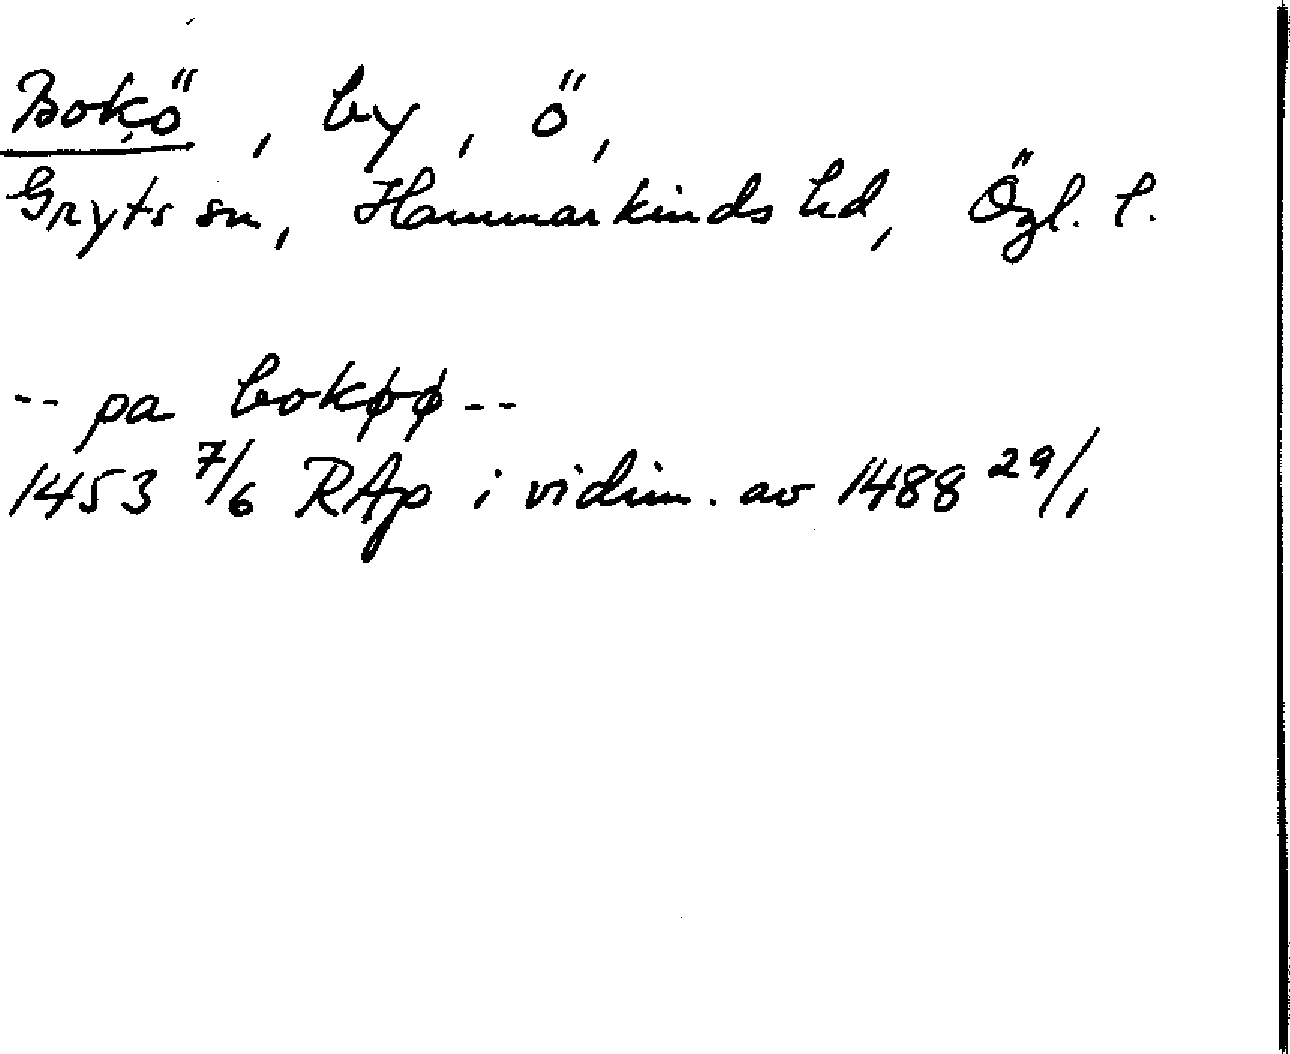 Bokö, by, ö,
Gryts sn, Hammarkinds hd, Ögl. l.
-- pa bokøø --
1453 7/6 RAp i vidim. av 1488 29/1